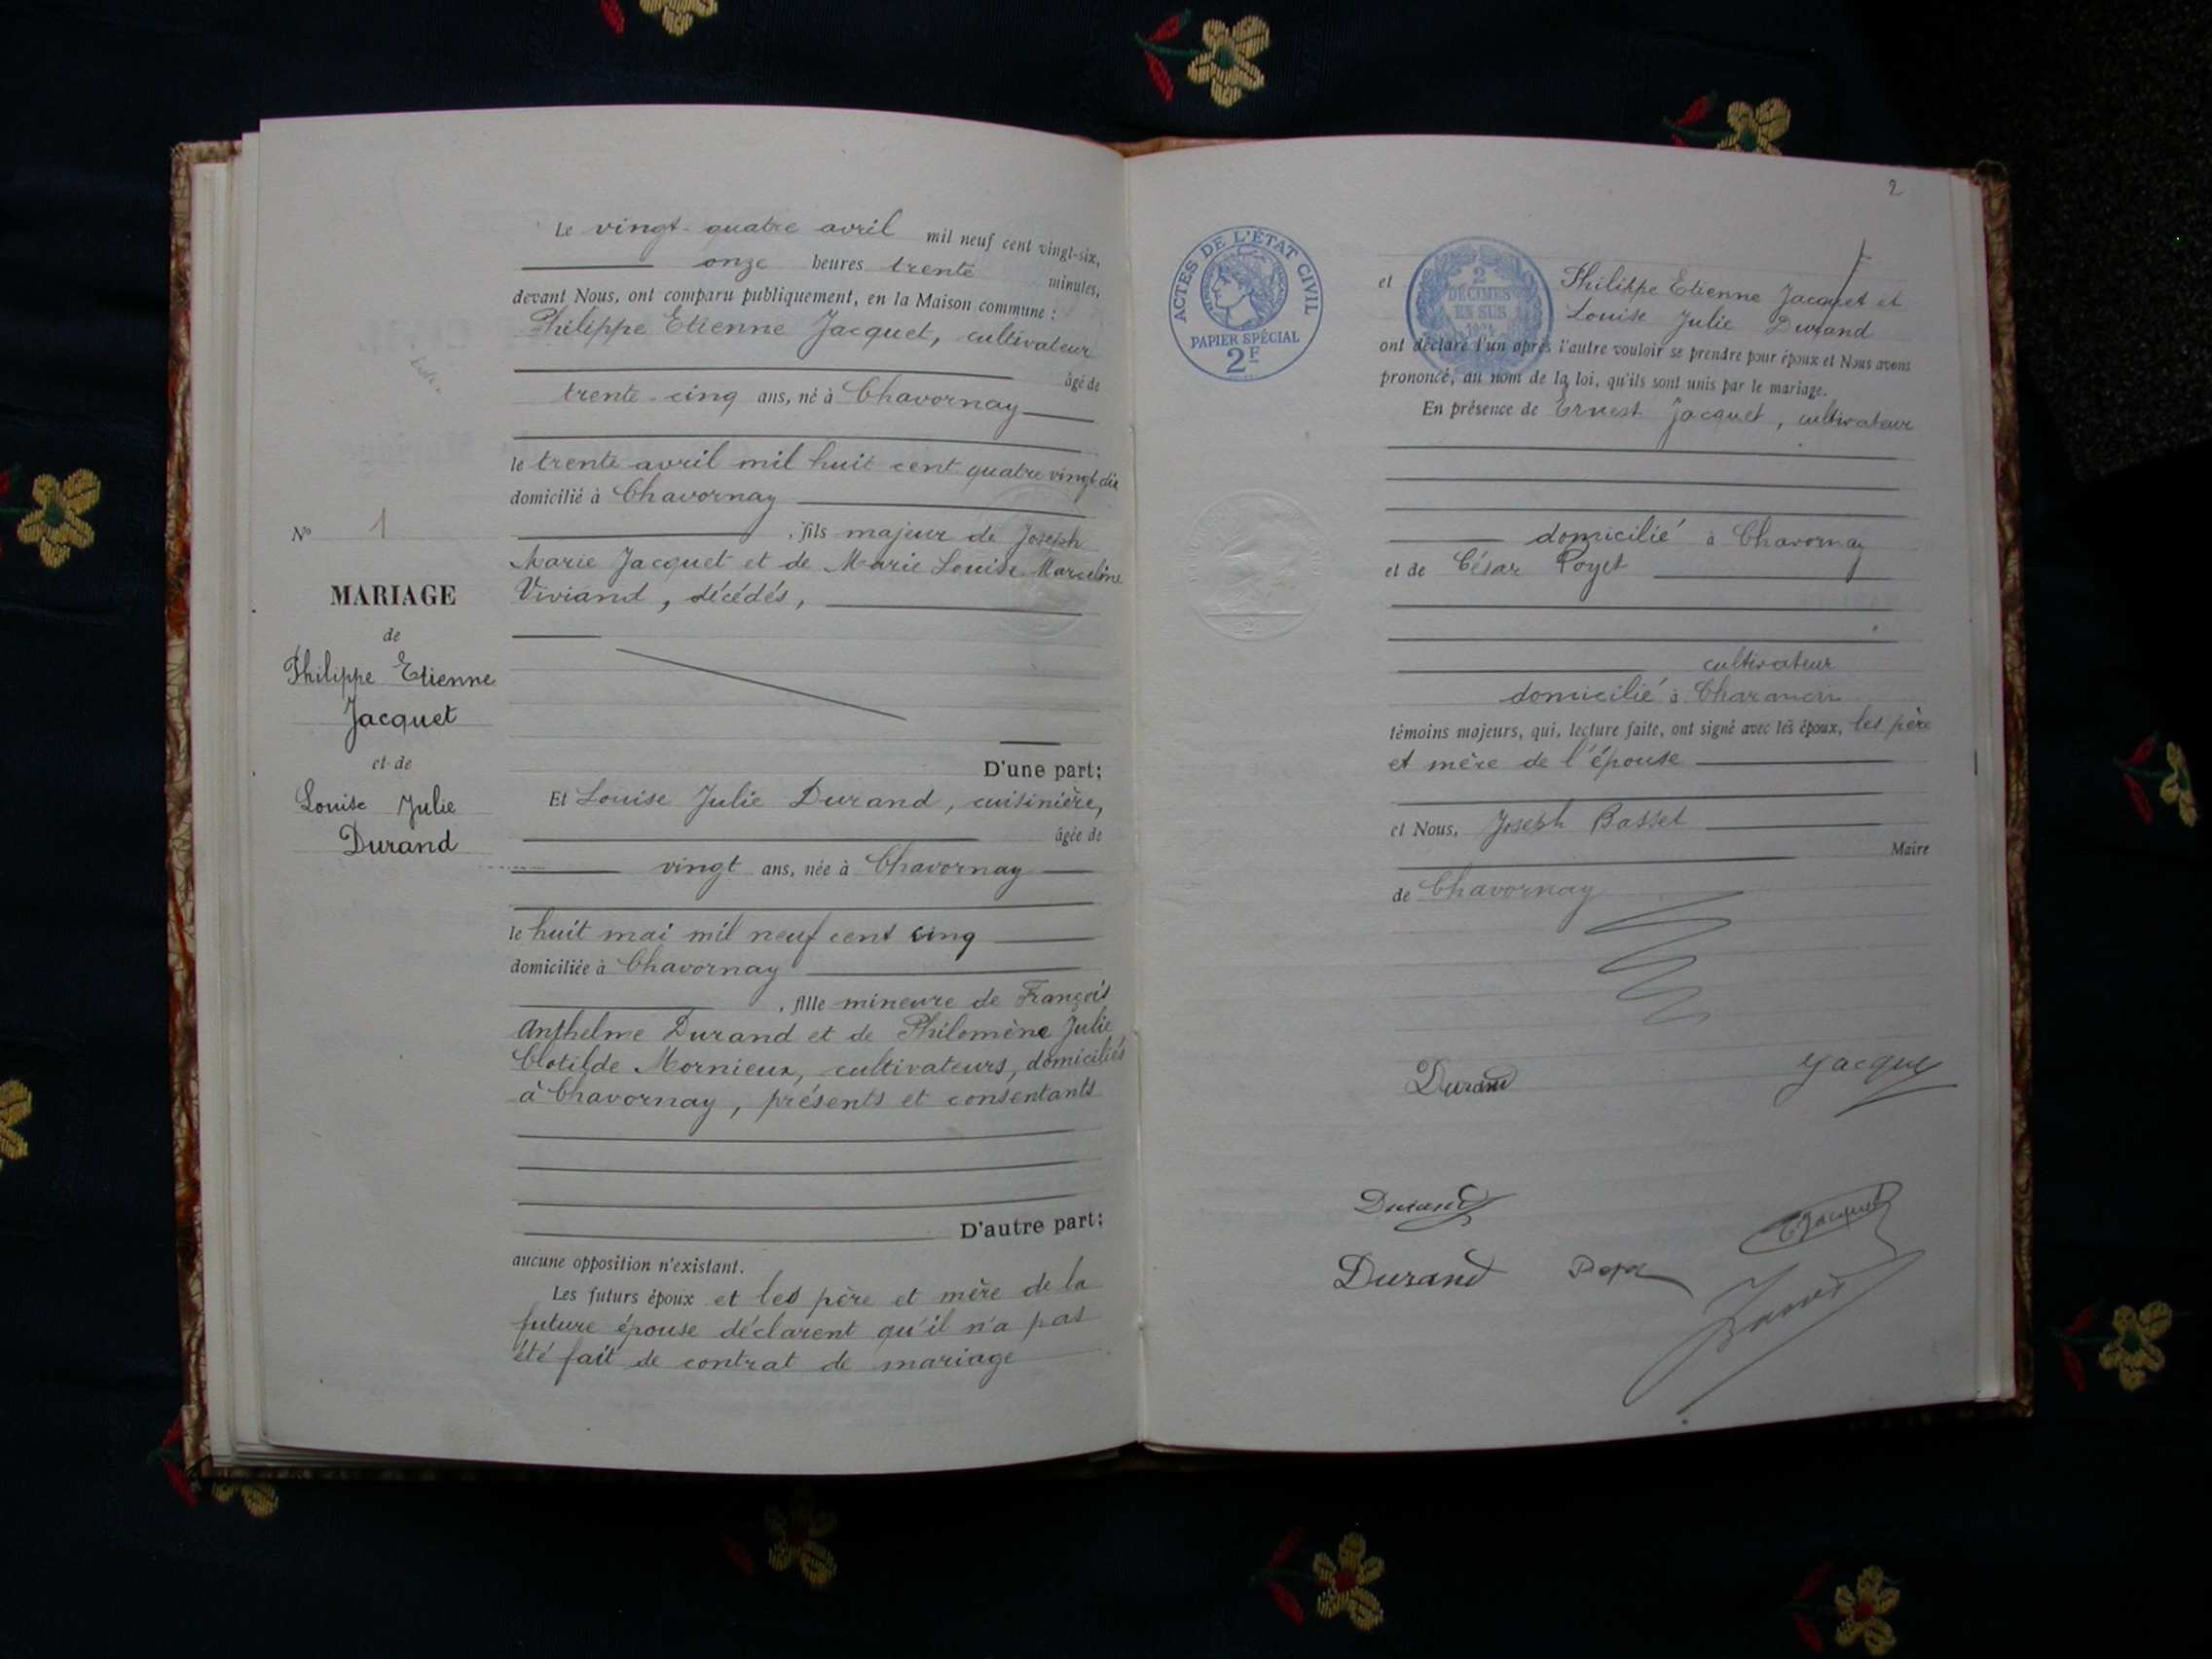 N° 1
MARIAGE
de
Philippe Etienne
Jacquet
et de
Louise Julie
Durand
Le vingt-quatre avril mil neuf cent vingt-six,
onze heures trente minutes,
devant Nous, ont comparu publiquement, en la Maison commune :
Philippe Etienne Jacquet, cultivateur
âgé de
trente-cinq ans, né à Chavornay
le trente avril mil huit cent quatre vingt dix
domicilié à Chavornay
, fils majeur de Joseph
Marie Jacquet et de Marie Louise Marceline
Viviand, décédés,
D'une part;
Et Louise Julie Durand, cuisinière,
âgée de
vingt ans, née à Chavornay
le huit mai mil neuf cent cinq
domiciliée à Chavornay
, fille mineure de François
Anthelme Durand et de Philomène Julie
Clotilde Mornieux, cultivateurs, domiciliés
à Chavornay, présents et consentants
D'autre part;
aucune opposition n'existant.
Les futurs époux et les père et mère de la
future épouse déclarent qu'il n'a pas
été fait de contrat de mariage
2
ACTES DE L'ÉTAT CIVIL
PAPIER SPÉCIAL
2F
2
DÉCIMES
EN SUS
et Philippe Etienne Jacquet et
Louise Julie Durand
ont déclaré l'un après l'autre vouloir se prendre pour époux et Nous avons
prononcé, au nom de la loi, qu'ils sont unis par le mariage.
En présence de Ernest Jacquet, cultivateur
domicilié à Chavornay
et de César Poyet
cultivateur
domicilié à Charancin
témoins majeurs, qui, lecture faite, ont signé avec les époux, les père
et mère de l'épouse
et Nous, Joseph Basset
Maire
de Chavornay
Durand
Jacquet
Durand
E Jacquet
Durand
Basset